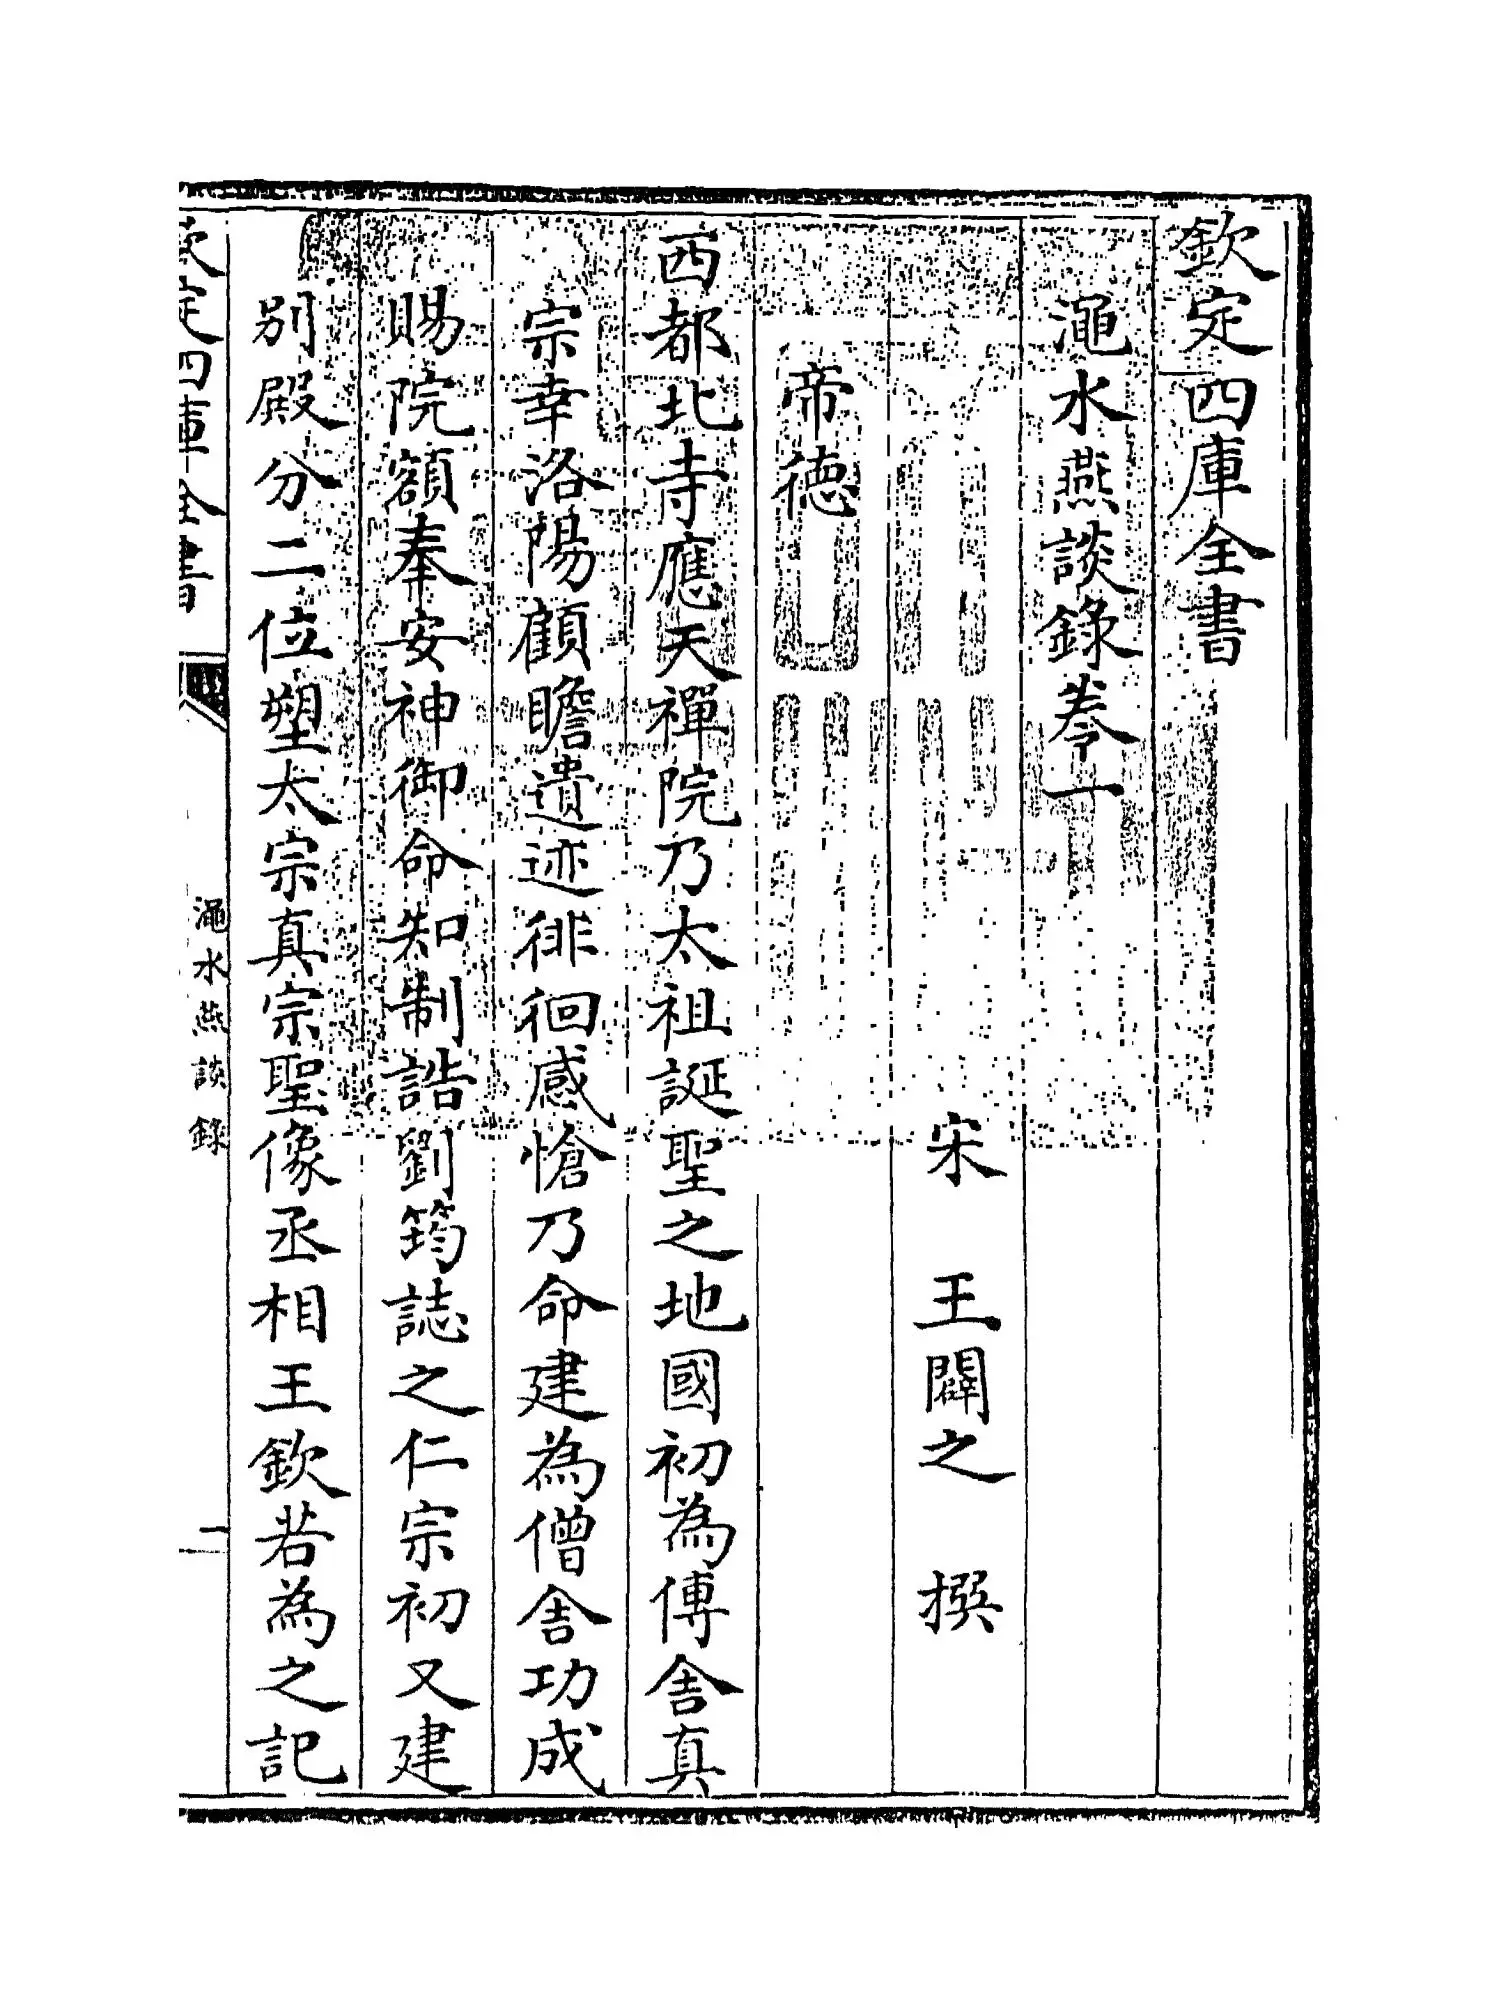 欽定四庫全書
澠水燕談錄卷一
宋 王闢之 撰
帝德
西都北寺應天禪院乃太祖誕聖之地國初為傳舍真
宗幸洛陽顧瞻遺迹徘徊感愴乃命建為僧舍功成
賜院額奉安神御命知制誥劉筠誌之仁宗初又建
別殿分二位塑太宗真宗聖像丞相王欽若為之記
欽定四庫全書
澠水燕談錄
一